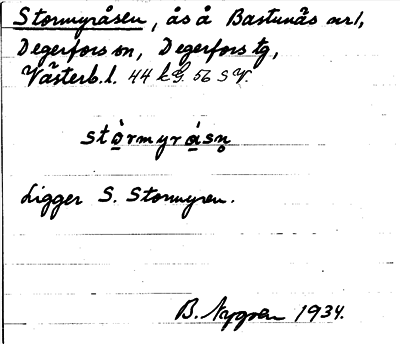 Stormyråsen, ås å Bastunäs arl,
Degerfors sn, Degerfors tg,
Västerb. l. 44 kG. 56 SV.
stòrmyrásn̥
Ligger S. Stormyren.
B. Nygren 1934.